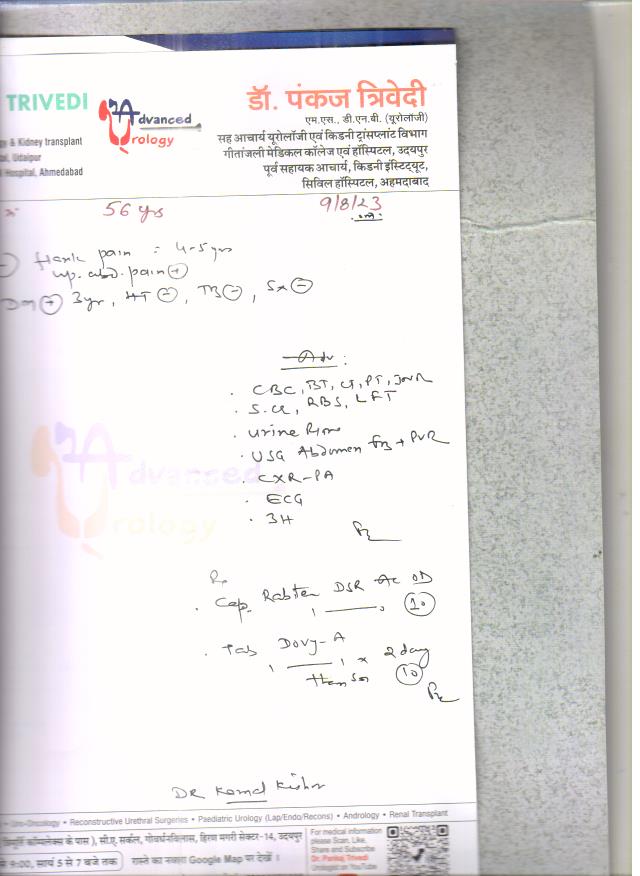 TRIVEDI
Advanced
Urology
डॉ. पंकज त्रिवेदी
एम.एस., डी.एन.बी. (यूरोलॉजी)
सह आचार्य यूरोलॉजी एवं किडनी ट्रांसप्लांट विभाग
गीतांजली मेडिकल कॉलेज एवं हॉस्पिटल, उदयपुर
पूर्व सहायक आचार्य, किडनी इंस्टिट्यूट,
सिविल हॉस्पिटल, अहमदाबाद
y & Kidney transplant
al, Udaipur
Hospital, Ahmedabad
56 yrs
9/8/23
flank pain : 4-5 yrs
up. abd. pain (+)
DM (+) 3yr, HT (-), TB (-), Sx (-)
Adv :
. CBC, BT, CT, PT, INR
. S. Cr, RBS, LFT
. Urine R/m
. USG Abdomen + PVR
. CXR-PA
. ECG
. 3H
Advanced
Urology
Rx
. Cap. Rabter DSR AC OD
10
. Tab Dovy-A
x 2 day
then
10
DR Komal Kishor
Uro-Oncology • Reconstructive Urethral Surgeries • Paediatric Urology (Lap/Endo/Recons) • Andrology • Renal Transplant
कॉम्पलेक्स के पास ), सी.ए. सर्कल, गोवर्धनविलास, हिरण मगरी सेक्टर-14, उदयपुर
9:00, सायं 5 से 7 बजे तक
रास्ते का नक्शा Google Map पर देखें ।
For medical information
please Scan, Like,
Share and Subscribe
Dr. Pankaj Trivedi
Urologist on YouTube